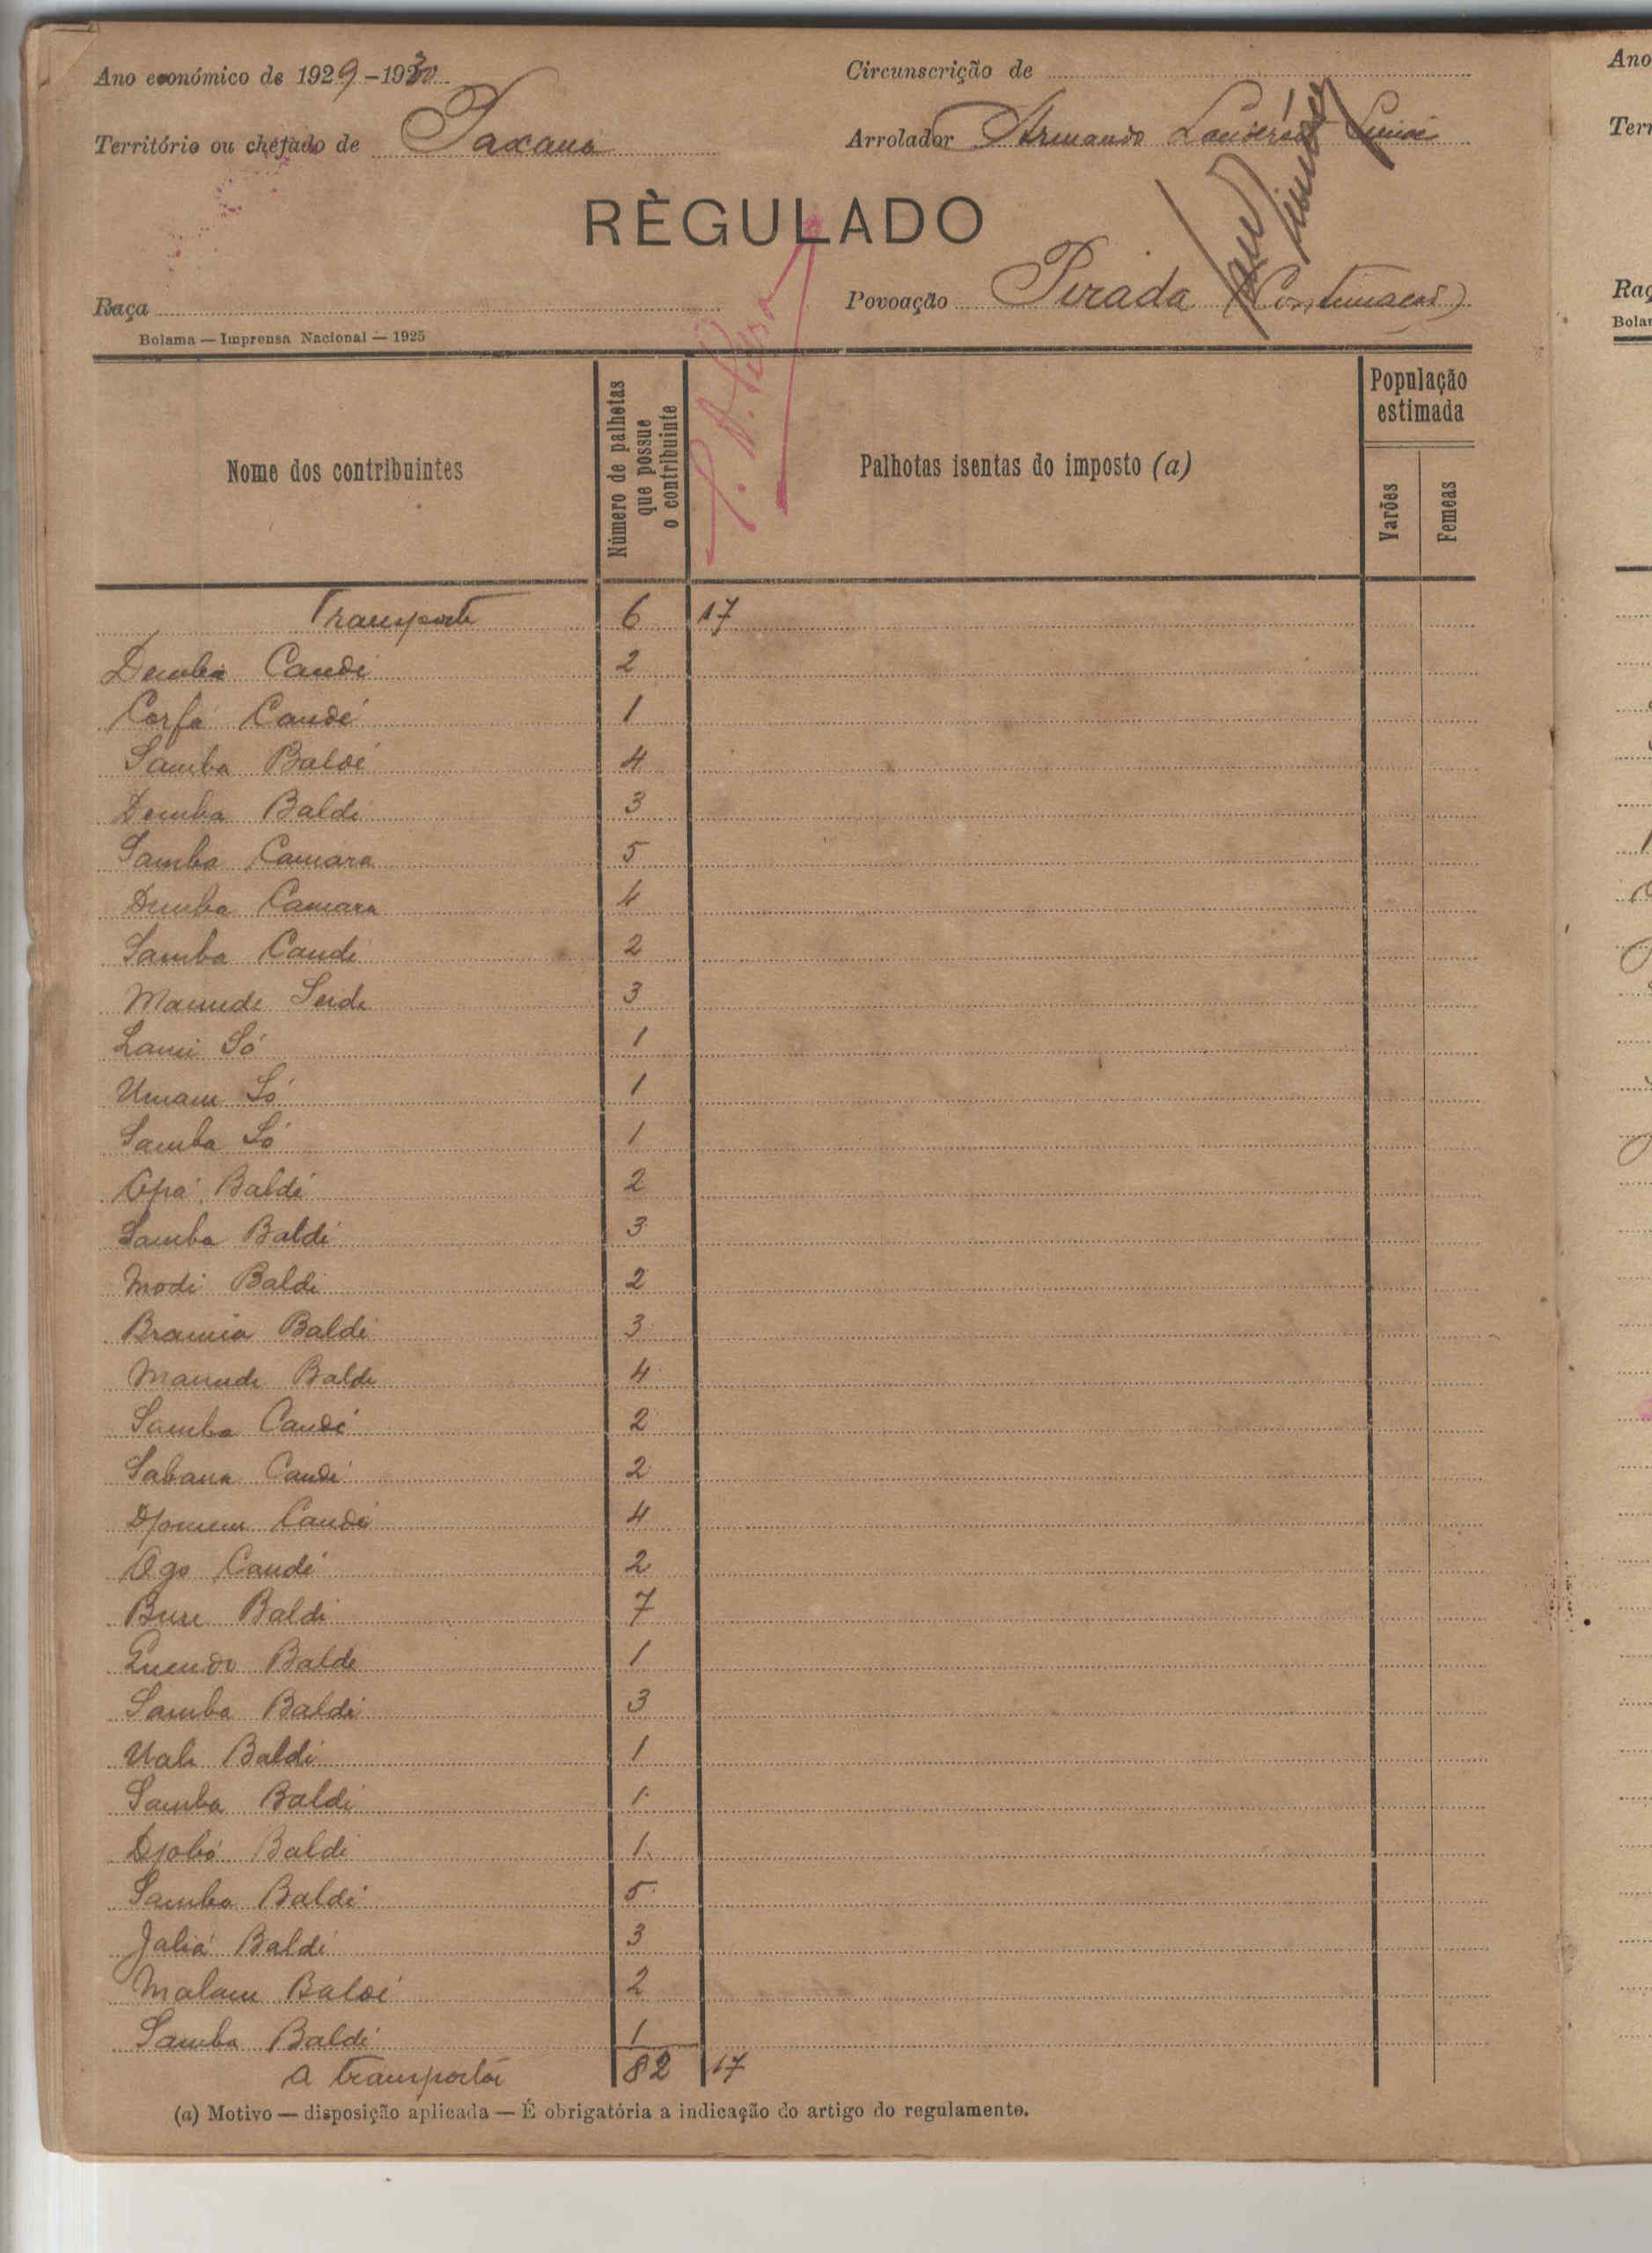 Ano económico de 1929-1930
Circunscrição de
Território ou chefado de Paxana
Arrolador Armando
RÈGULADO
Raça
Povoação Pirada (Continuação)
Bolama — Imprensa Nacional — 1925
Nome dos contribuintes
Número de palhetas que possue o contribuinte
Palhotas isentas do imposto (a)
População estimada
Varões
Femeas
Transporte 6 17
Demba Candé 2
Corfá Candé 1
Samba Baldé 4
Demba Baldé 3
Samba Camara 5
Demba Camara 4
Samba Candé 2
Mamude Seide 3
Lami Só 1
Umaru Só 1
Samba Só 1
Baldé 2
Samba Baldé 3
Modi Baldé 2
Bramia Baldé 3
Mamude Balde 4
Samba Candé 2
Sabana Candé 2
Candé 4
Ogo Candé 2
Buru Baldé 7
Balde 1
Samba Baldé 3
Baldé 1
Samba Baldé 1
Djobó Baldé 1
Samba Baldé 5
Jaliá Baldé 3
Malam Baldé 2
Samba Baldé 1
A transportar 82 17
(a) Motivo — disposição aplicada — É obrigatória a indicação do artigo do regulamento.